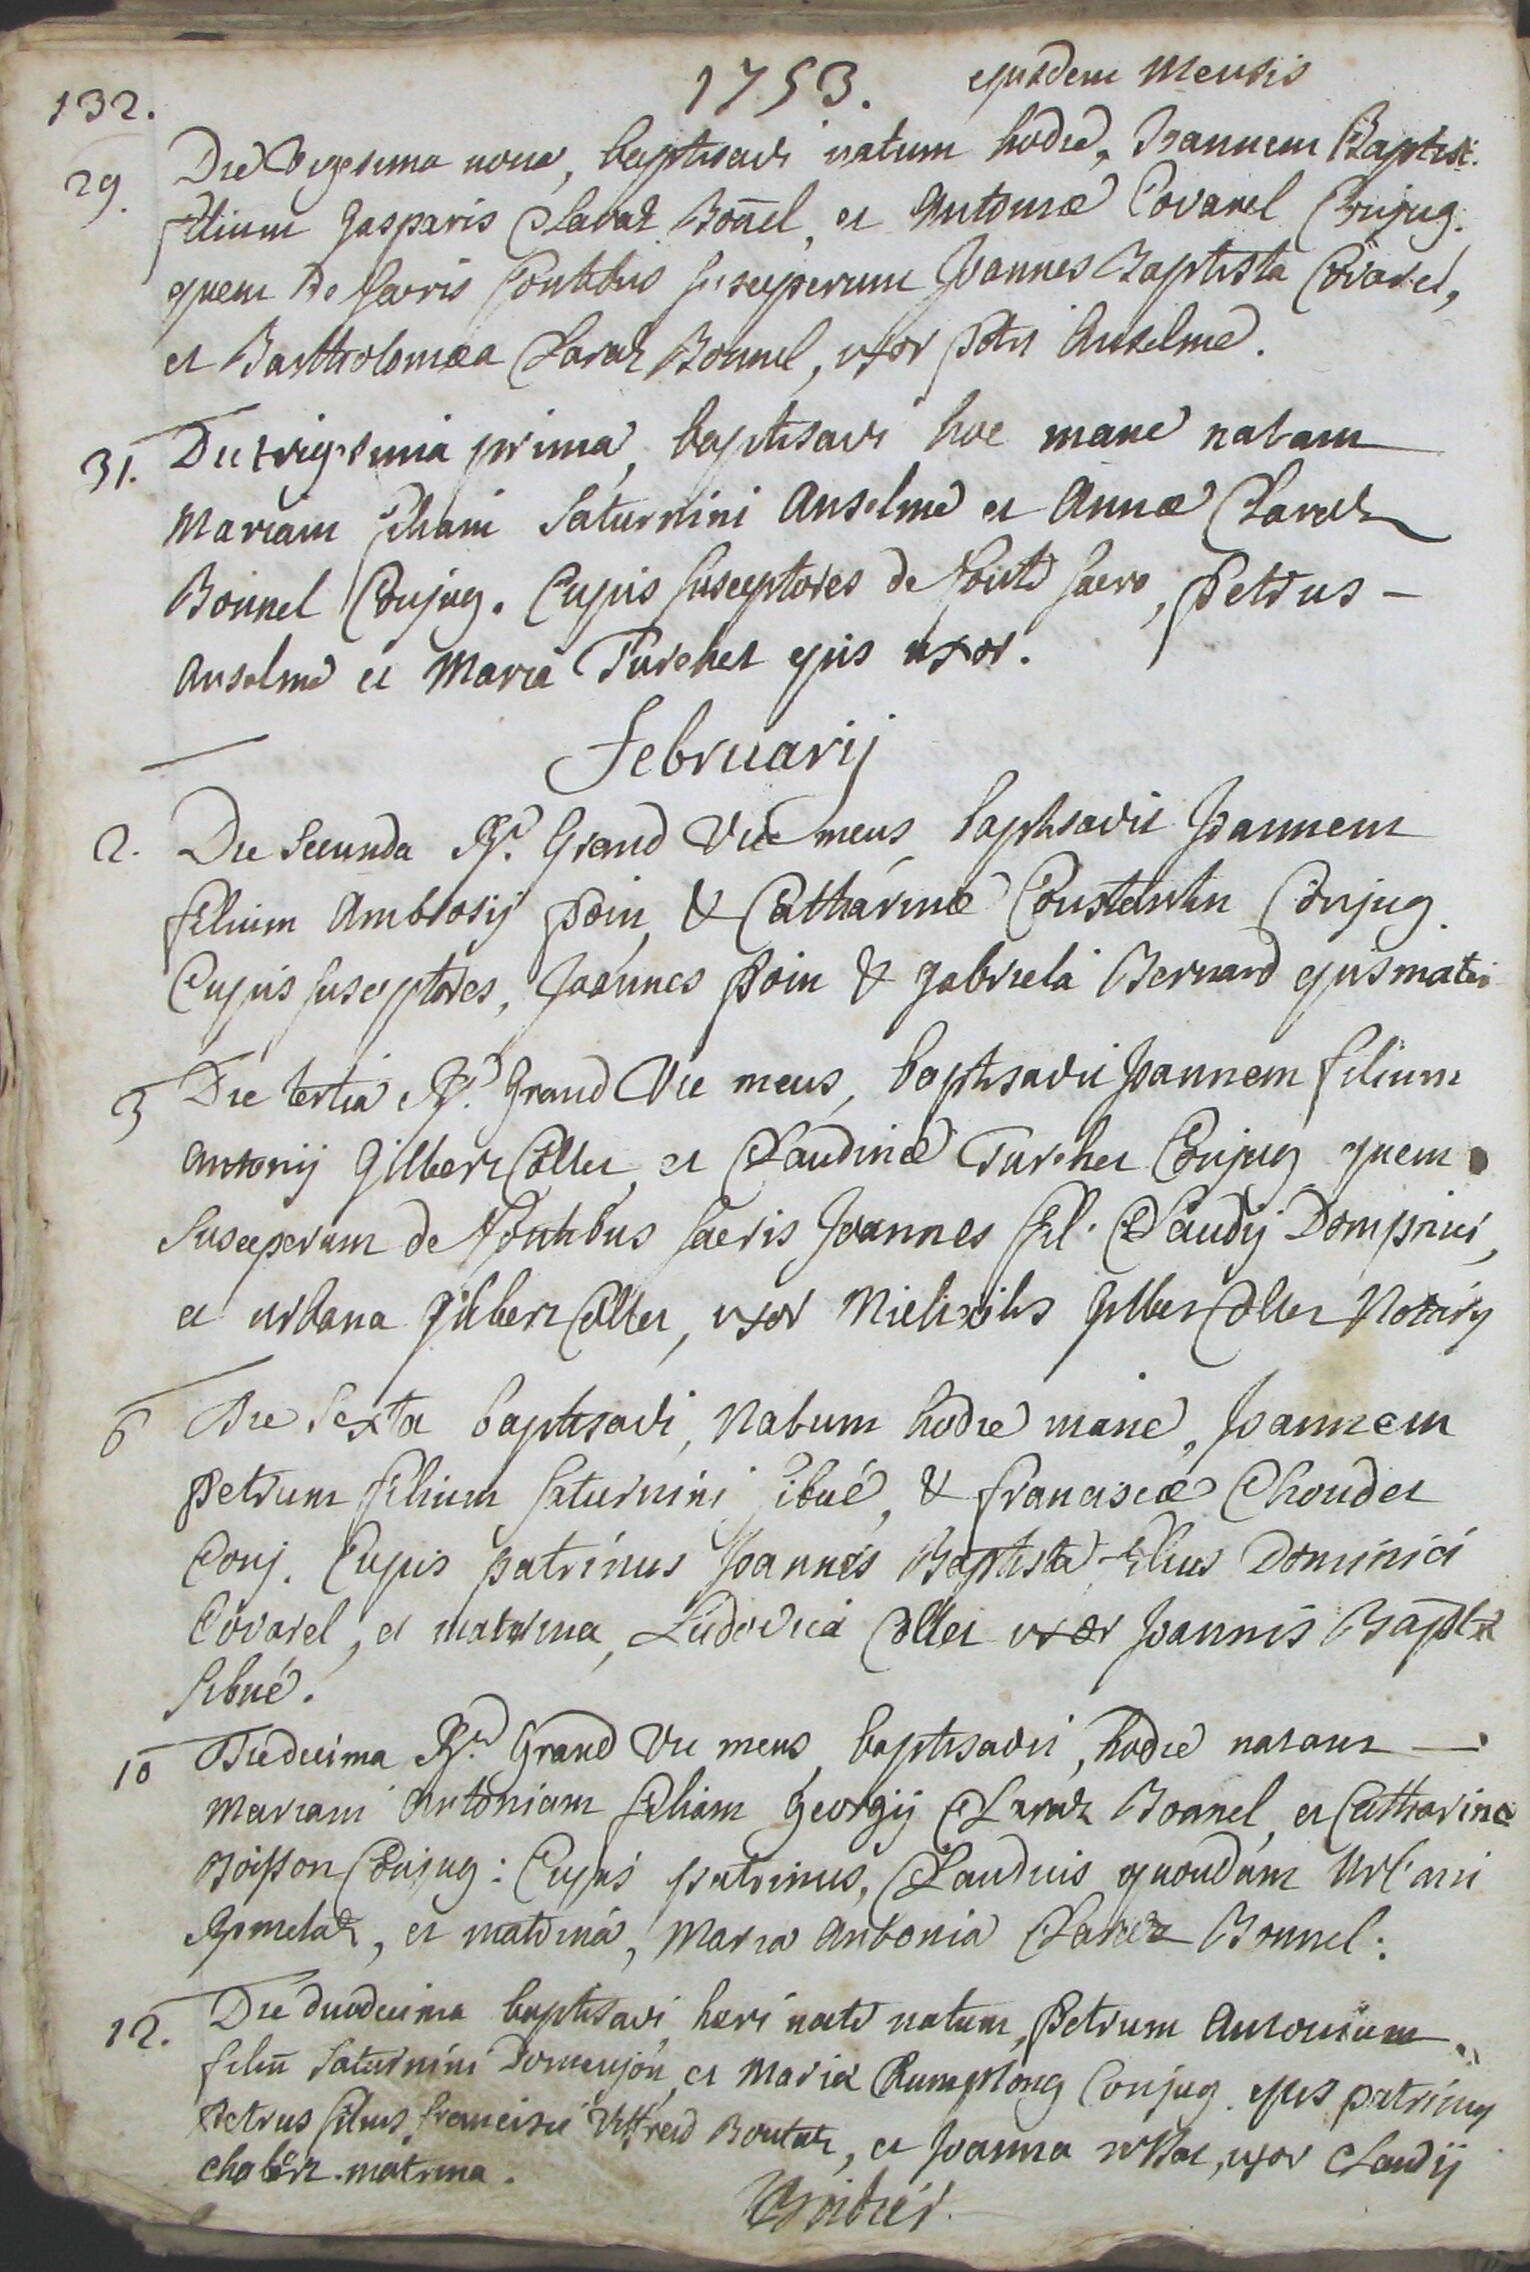 132.
1753. ejusdem Mensis
29. Die Vigesima nona, baptisavi natum hodie, Joannem Baptist.
filium Gasparis Claraz Bonel, et Antoniæ Covarel Conjug.
quem de sacris fontibus susceperunt Joannes Baptista Covarel,
et Bartholomæa Claraz Bonnel, uxor Petri Anselme.
31. Die trigesima prima, baptisavi hoc mane natam
Mariam filiam Saturnini Anselme et Annæ Claraz
Bonnel Conjug. Cujus susceptores de fonte sacro, Petrus -
Anselme et Maria Turcher ejus uxor.
Februarij
2. Die Secunda Rd. Grand Vic meus baptisavit Joannem
filium Ambrosij Poin, & Catharinæ Constantin Conjug.
Cujus susceptores, Joannes Poin & Gabriela Bernard ejus mater
3 Die tertia Rd. Grand Vic meus, baptisavit Joannem filium
Antonij Gilbert Collet, et Claudinæ Turcher Conjug quem
susceperunt de fontibus sacris Joannes fil. Claudij Dompnier,
et urbana Gilbert Collet, uxor Michælis Gilbert Collet Notarij
6 Die Sexta baptisavi, Natum hodie mane, Joannem
Petrum filium Saturnini Sibué, & franciscæ Choudet
Conj. Cujus patrinus Joannes Baptista filius Dominici
Covarel, et matrina, Ludovica Collet uxor Joannis Baptæ
Sibué.
10 Die decima Rd. Grand Vic meus, baptisavit, hodie natam —
Mariam Antoniam filiam Georgij Claraz Bonnel, et Catharinæ
Boisson Conjug: Cujus patrinus, Claudius quondam Urbani
, et matrina, Maria Antonia Claraz Bonnel.
12. Die duodecima baptisavi heri nocte natum, Petrum Antonium
filiu Saturnini Domenjon, et Mariæ Conjug. ejus patrinus
Petrus filius francisci Viffrend Boutaz, et Joanna , uxor Claudij
Chabert matrina.